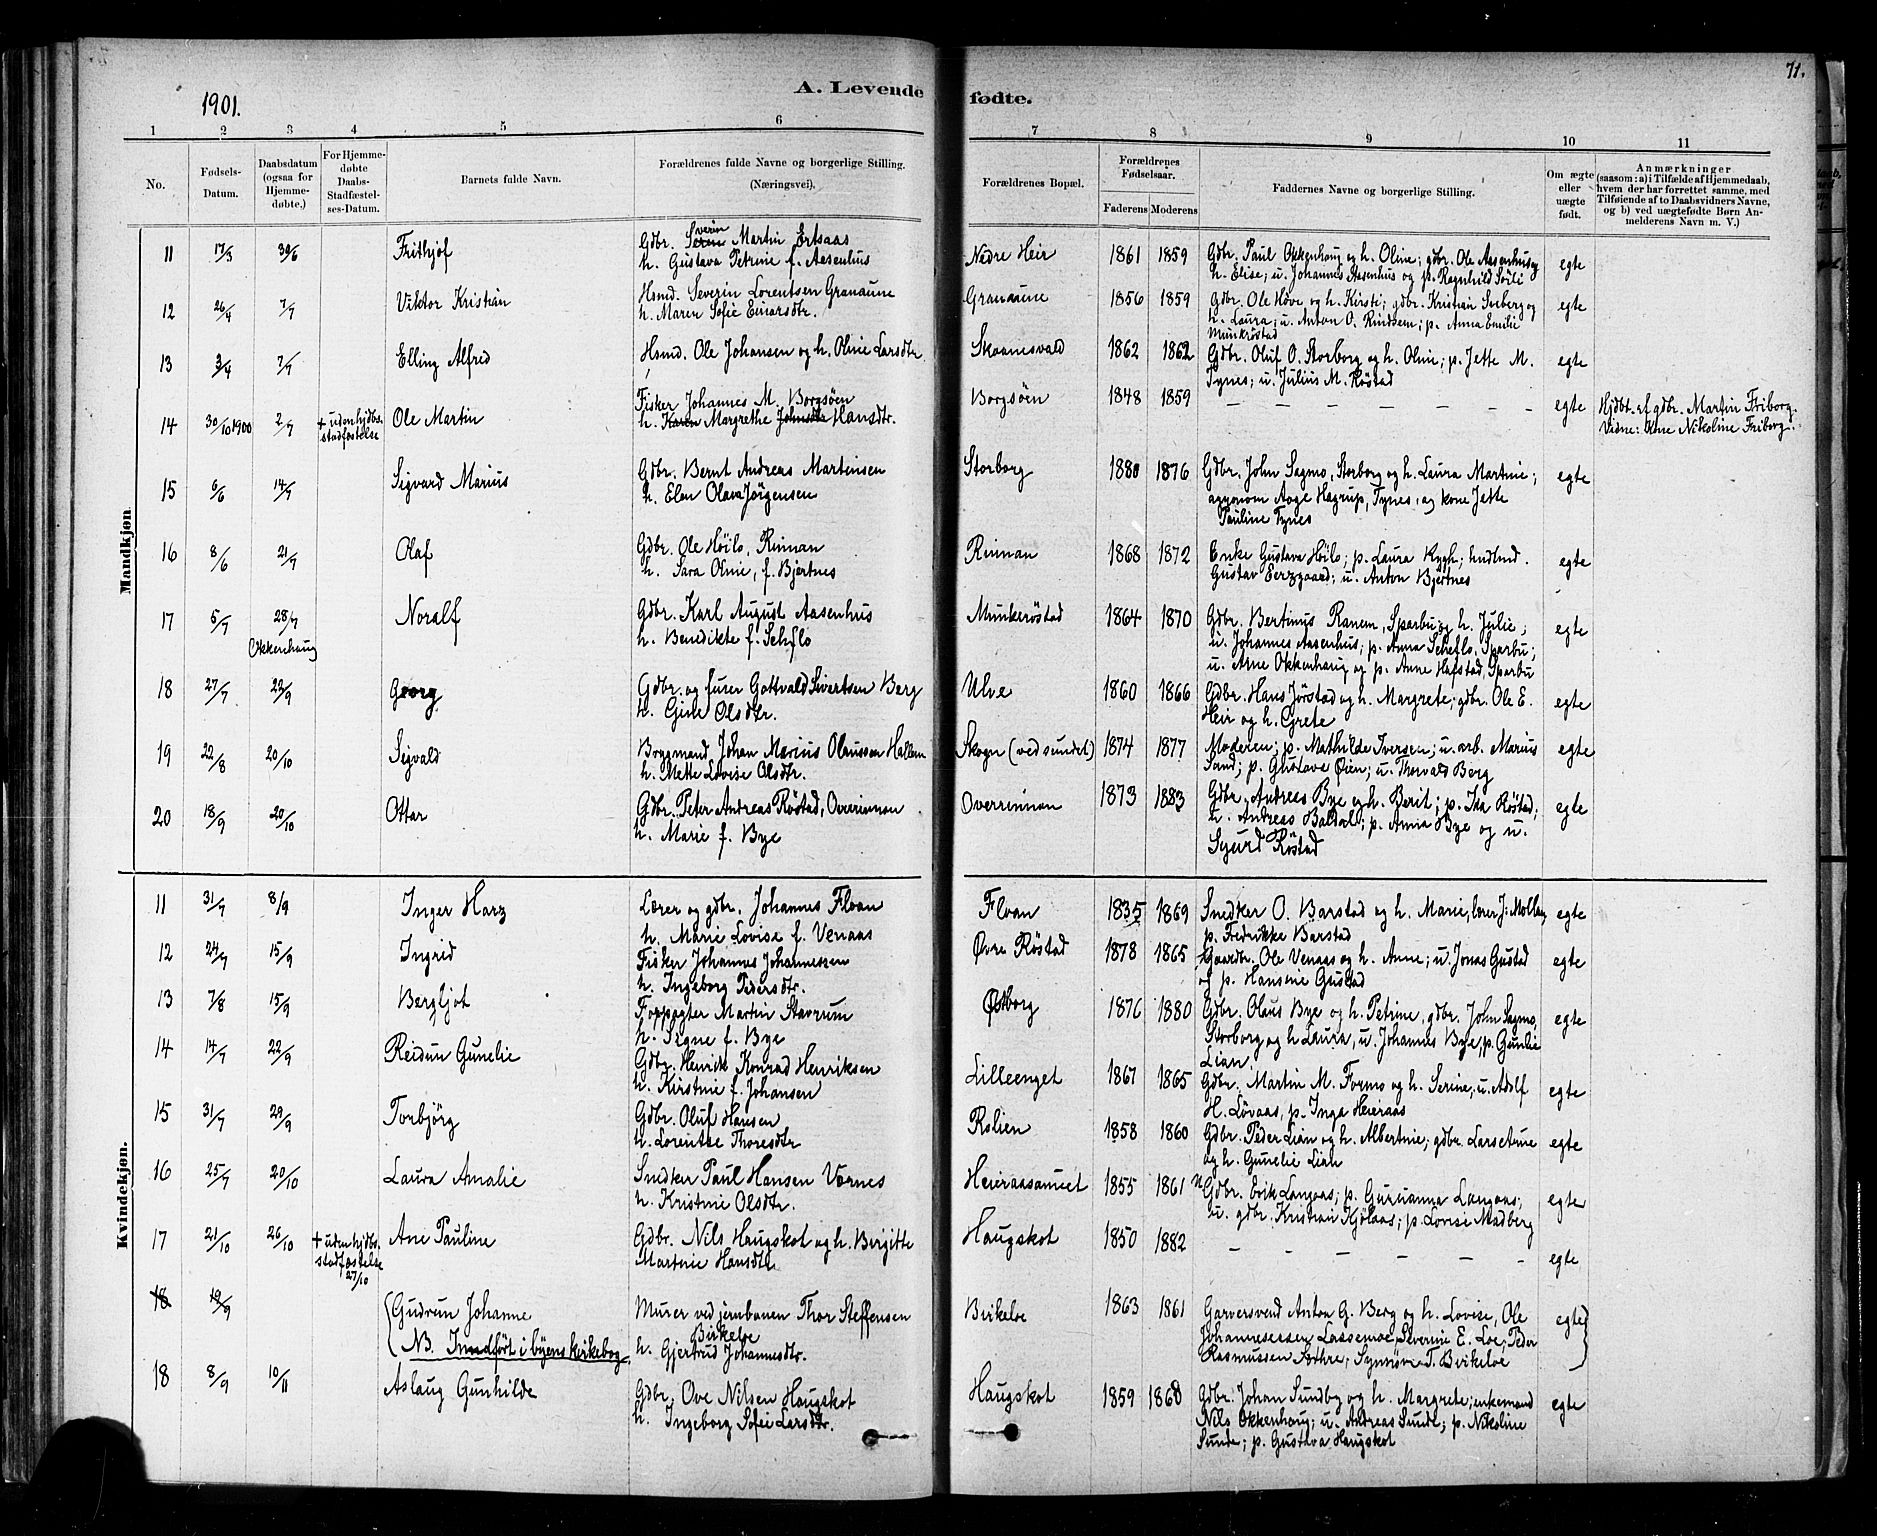 71.
1901.
A. Levende fødte.
1 2 3 4 5 6 7 8 9 10 11
No.
Fødsels-Datum.
Daabsdatum (ogsaa for Hjemme-døbte.)
For Hjemme-døbte Daabs-Stadfæstel-ses-Datum.
Barnets fulde Navn.
Forældrenes fulde Navne og borgerlige Stilling. (Næringsvei).
Forældrenes Bopæl.
Forældrenes Fødselsaar.
Faderens Moderens
Faddernes Navne og borgerlige Stilling.
Om ægte eller uægte født.
Anmærkninger (saasom: a) i Tilfælde af Hjemmedaab, hvem der har forrettet samme, med Tilføiende af to Daabsvidners Navne, og b) ved uægtefødte Børn An-melderens Navn m. V.)
Mandkjøn
11 17/3 30/6 Frithjof
Gdbr. Sverin Martin Ertsaas
h. Gustava Petrine f. Aasenhus
Nedre Heir 1861 1859
Gdbr. Paul Okkenhaug og h. Oline; gdbr. Ole Aasenhus og
h. Elise; u. Johannes Aasenhus og p. Ragnhild
egte
12 26/4 7/7 Viktor Kristian
Hsmd. Severin Lorentsen Granaune
h. Maren Sofie Einarsdtr.
Granaune 1856 1859
Gdbr. Ole Hove og h. Kirsti; gdbr. Kristian Sneberg og
h. Laura; u. Anton O. Rindsem; p. Anna Emilie
Munkrøstad
egte
13 3/4 7/7 Elling Alfred
Hsmd. Ole Johansen og h. Oline Larsdtr.
Skaanesvald 1862 1862
Gdbr. Oluf O. Storborg og h. Oline; p. Jette M.
Tynes; u. Julius M. Røstad
egte
14 30/10 1900 2/7 + uden hjdbs. stadfæstelse Ole Martin
Fisker Johannes M. Borgsöen
h. Karen Margrethe Johnsdtr Hansdtr.
Borgsöen 1848 1859
— — — — — — —
egte
Hjdbt. af gdbr. Martin Friborg.
Vidne: Kone Nikoline Friborg.
15 6/6 14/7 Sigvard Marius
Gdbr. Bernt Andreas Martinsen
h. Elen Olava Jörgensen
Storborg 1880 1876
Gdbr. John Sagmo, Storborg og h. Laura Martine;
agronom Aage Hagrup, Tynes, og kone Jette
Pauline Tynes
egte
16 8/6 21/7 Olaf
Gdbr. Ole Höilo, Rinnan
h. Sara Oline, f. Bjertnes
Rinnan 1868 1872
Enke Gustava Höilo; p. Laura Rygh; hndlmd.
Gustav Eerzgaard; u. Anton Bjertnes
egte
17 5/7 28/7 Okkenhaug Noralf
Gdbr. Karl August Aasenhus
h. Benedikte f. Scheflo
Munkeröstad 1864 1870
Gdbr. Bertinus Ranem, Sparbu og h. Julie;
u. Johannes Aasenhus; p. Anna Scheflo, Sparbu;
u. Arne Okkenhaug og p. Anne Hafstad, Sparbu
egte
18 27/7 22/9 Georg
Gdbr. og furer Gottvald Sivertsen Berg
h. Gine Olsdtr.
Ulve 1860 1866
Gdbr. Hans Jörstad og h. Margrete; gdbr. Ole E.
Heir og h. Grete
egte
19 22/8 20/10 Sigvald
Brygmand Johan Marius Olaussen Hallem
h. Mette Lovise Olsdtr.
Skogn (ved sundet) 1874 1877
Moderen; p. Mathilde Iversen; u. arb. Marius
Sand; p. Gustave Øien; u. Thorvald Berg
egte
20 18/9 20/10 Ottar
Gdbr. Peter Andreas Röstad, Overrinnan
h. Marie f. Bye
Overrinnan 1873 1883
Gdbr. Andreas Bye og h. Berit; p. Ida Röstad;
u. Andreas Baldal; p. Anna Bye og u.
Sigurd Röstad
egte
Kvindekjøn.
11 31/7 8/9 Inger Harz
Lærer og gdbr. Johannes Floan
h. Marie Lovise f. Venaas
Floan 1835 1869
Snedker O. Barstad og h. Marie, lærer J. Mollan,
p. Fredrikke Barstad
egte
12 24/7 15/9 Ingrid
Fisker Johannes Johannessen
h. Ingeborg Pedersdtr.
Övre Röstad 1878 1865
Gaardbr. Ole Venaas og h. Anne; u. Jonas Gustad
og p. Hansine Gustad
egte
13 7/8 15/9 Bergljot
Forpagter Martin Stavrum
h. Signe f. Bye
Østborg 1876 1880
Gdbr. Olaus Bye og h. Petrine, gdbr. John Sagmo,
Storborg og h. Laura, u. Johannes Bye, p. Gunelie
Lian.
egte
14 14/7 22/9 Reidun Gunelie
Gdbr. Henrik Konrad Henriksen
h. Kristine f. Johansen
Lilleenget 1867 1865
Gdbr. Martin M. Formo og h. Serine, u. Adolf
H. Lövaas, p. Inga Heieraas
egte
15 31/7 29/9 Torbjörg
Gdbr. Oluf Hansen
h. Lorentse Thoresdtr
Rolien 1858 1860
Gdbr. Peder Lian og h. Albertine; gdbr. Lars Arne
og h. Gunelie Lian
egte
16 25/7 20/10 Laura Amalie
Snedker Paul Hansen Vornes
h. Kristine Olsdtr.
Heieraasaunet 1855 1861
Gdbr. Erik Langaas; p. Gurianna Langaas;
u. gdbr. Kristian Kjölaas; p. Lovise Madberg
egte
17 21/10 26/10 + uden hjdbs. stadfæstelse 27/10 Ane Pauline
Gdbr. Nils Haugskot og h. Birgitte
Martine Hansdtr
Haugskot 1850 1882
— — — — — —
egte
18 19/9 Gudrun Johanne
NB. Inndfört i byens kirkebog.
Murer ved jernbanen Thor Steffensen
Birkeloe
h. Gjertrud Johannesdtr.
Birkeloe 1863 1861
Garversvend Anton G. Berg og h. Lovise, Ole
Johannessen Lassemoe, Severine E. Loe, Peder
Rasmussen; Synnöve T. Birkeloe
egte
18 8/9 10/11 Aslaug Gunhilde
Gdbr. Ove Nilsen Haugskot
h. Ingeborg Sofie Larsdtr.
Haugskot 1859 1868
Gdbr. Johan Sundby og h. Margrete; enkemand
Nils Okkenhaug; u. Andreas Sunde; p. Nikoline
Sunde; p. Gustava Haugskot
egte